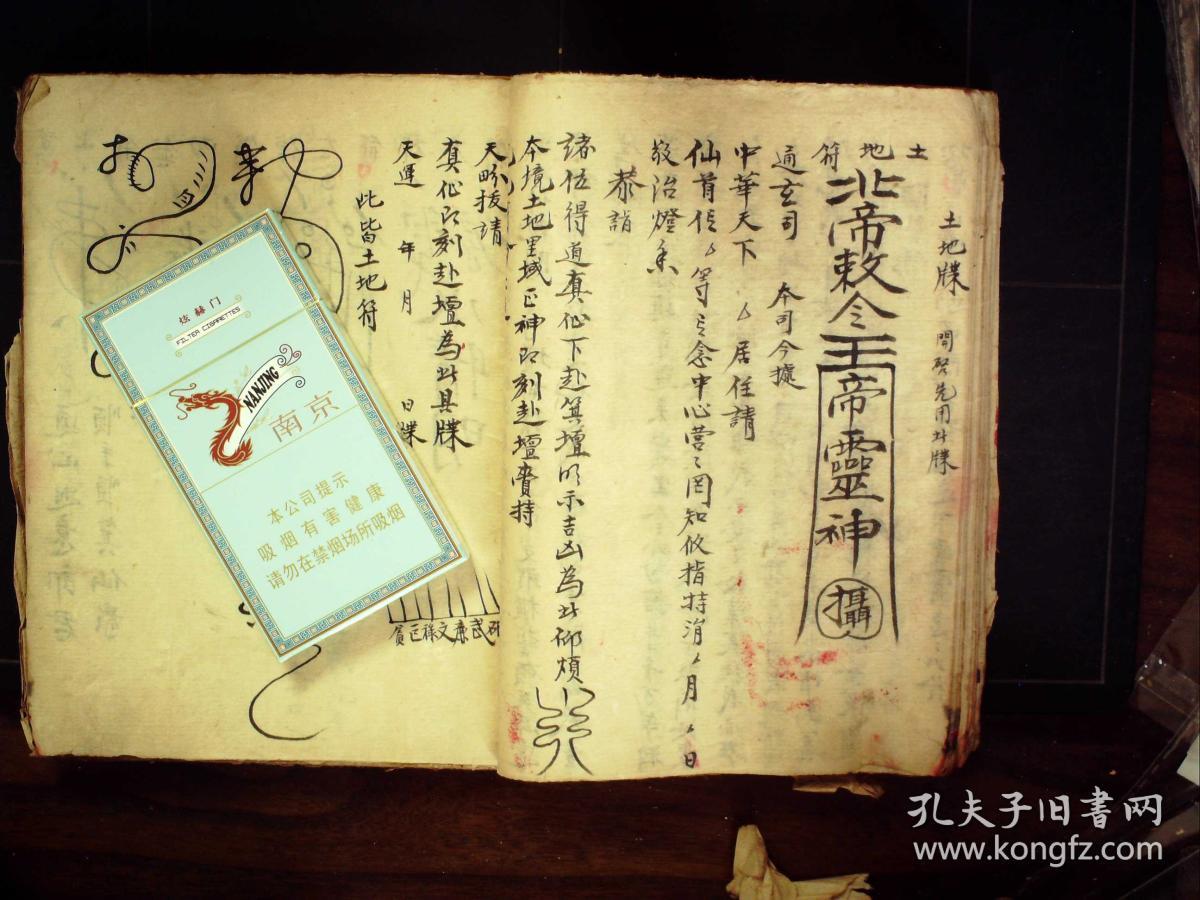 土地牒 開壇先用此牒
土地符
北帝敕令玉帝靈神攝
通玄司 本司今據
中華天下 厶居住請
仙首信厶等言念中心營〻罔知攸指特涓厶月厶日
敬治燈香
恭詣
諸位得道真仙下赴箕壇明示吉凶為此仰煩
本境土地里域正神即刻赴壇賫持
天畍拔請
真仙即刻赴壇為此具牒
天運 年 月 日牒
此皆土地符
炫赫门
FILTER CIGARETTES
NANJING
南京
本公司提示
吸烟有害健康
请勿在禁烟场所吸烟
孔夫子旧书网
www.kongfz.com